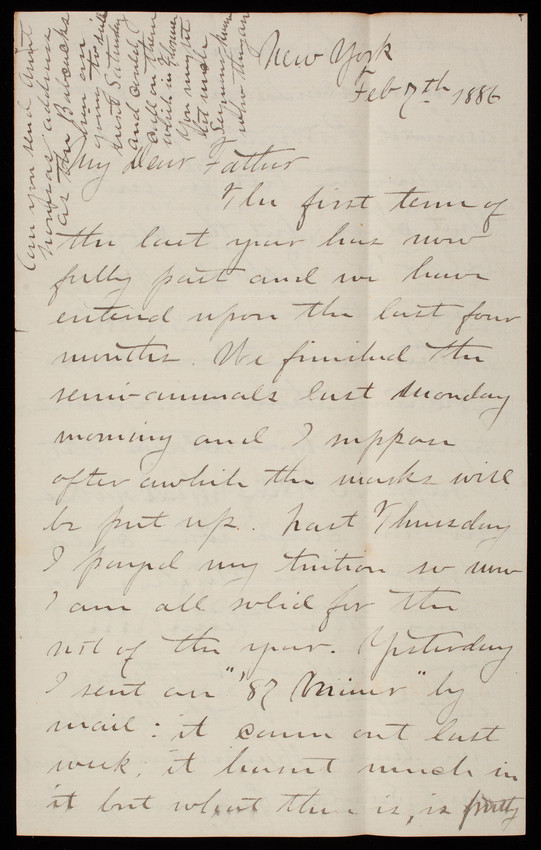 New York
Feb 7th 1886
My Dear Father
The first term of
the last year has now
fully past and we have
entered upon the last four
months. We finished the
semi-annuals last Monday
morning and I suppose
after awhile the marks will
be put up. Last Thursday
I payed my tuition so now
I am all solid for the
rest of the year. Yesterday
I sent an "'87 Miner" by
mail: it came out last
week, it hasnt much in
it but what there is, is pretty
Can you send Aunt
address
as the Babcocks
him are
going
next Saturday
and could
call on them
which in
You might